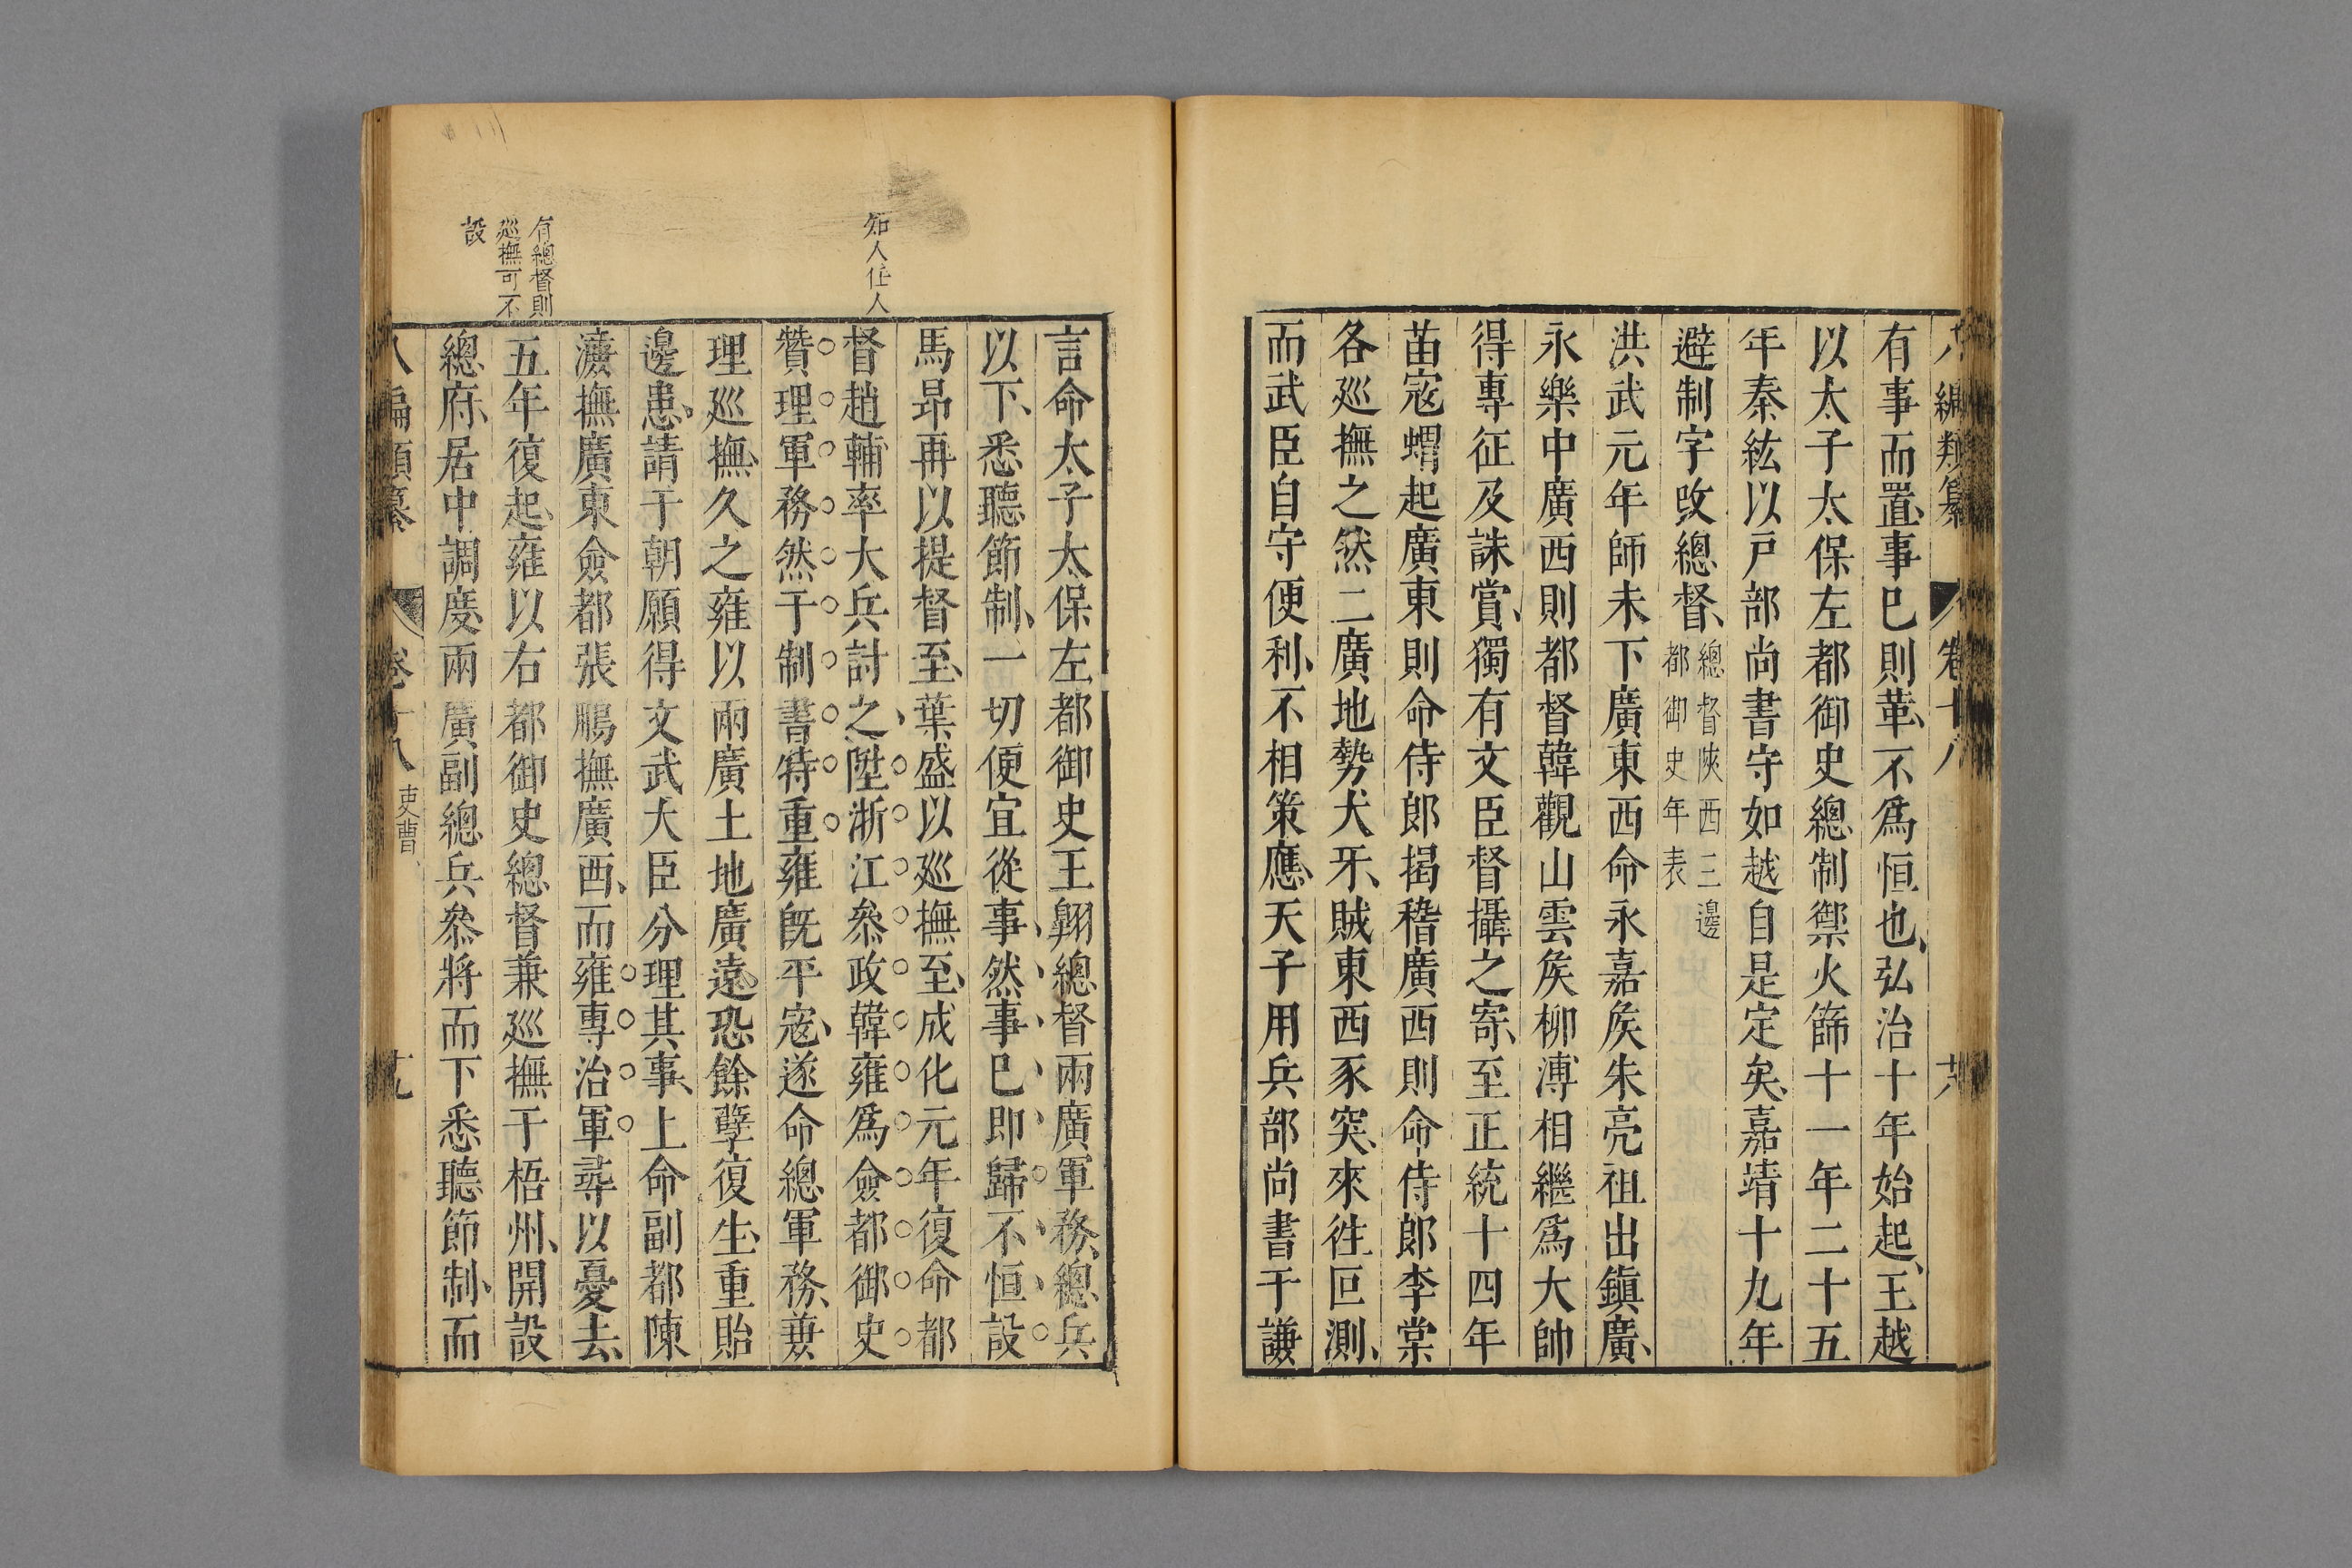 八編類纂 卷十八 十八
有事而置事已則革不爲恒也弘治十年始起王越
以太子太保左都御史總制禦火篩十一年二十五
年秦紘以戸部尚書守如越自是定矣嘉靖十九年
避制字改總督總督陝西三邊都御史年表
洪武元年師未下廣東西命永嘉矦朱亮祖出鎭廣
永樂中廣西則都督韓觀山雲矦柳溥相繼爲大帥
得專征及誅賞獨有文臣督攝之寄至正統十四年
苗宼蝟起廣東則命侍郎揭稽廣西則命侍郎李棠
各廵撫之然二廣地勢犬牙賊東西豕突來徃叵測
而武臣自守便利不相策應天子用兵部尚書于謙
言命太子太保左都御史王翺總督兩廣軍務總兵
以下悉聽節制一切便宜從事然事已即歸不恒設
馬昂再以提督至葉盛以廵撫至成化元年復命都
知人任人
督趙輔率大兵討之陞浙江叅政韓雍爲僉都御史
贊理軍務然于制書特重雍旣平宼遂命總軍務兼
理廵撫久之雍以兩廣土地廣遠恐餘孽復生重貽
邊患請于朝願得文武大臣分理其事上命副都陳
濂撫廣東僉都張鵬撫廣西而雍專治軍尋以憂去
有總督則
廵撫可不
設
五年復起雍以右都御史總督兼廵撫于梧州開設
總府居中調度兩廣副總兵叅將而下悉聽節制而
八編類纂 卷十八 吏曹 十九